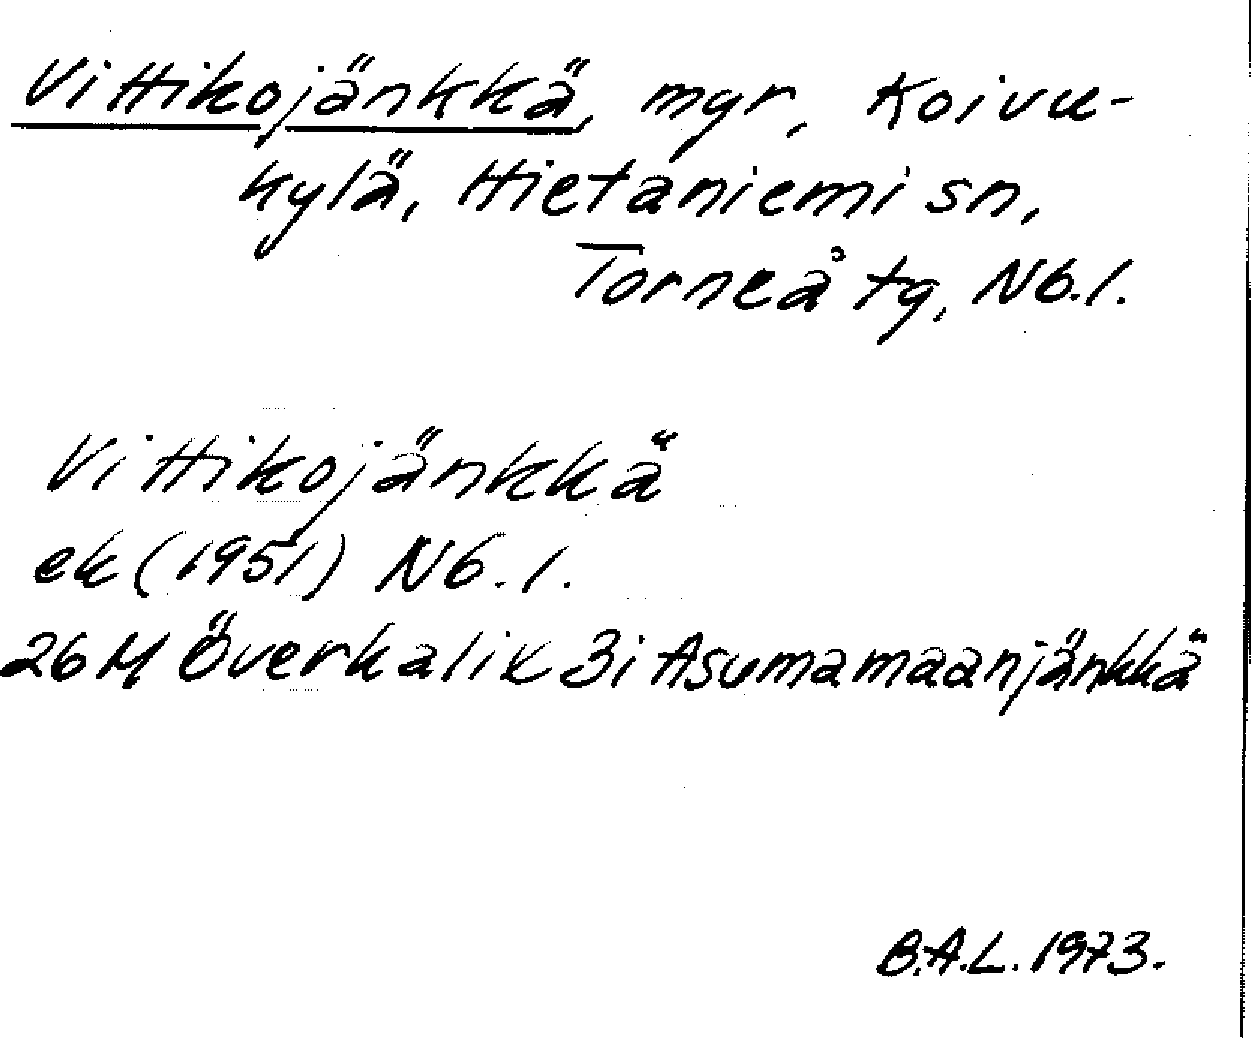 Vittikojänkkä, myr, Koivu-
kylä, Hietaniemi sn,
Torneå tg, Nb.l.
Vittikojänkkä
ek (1951) Nb.l.
26 M Överkalix 3i Asumamaanjänkkä
B.A.L. 1973.